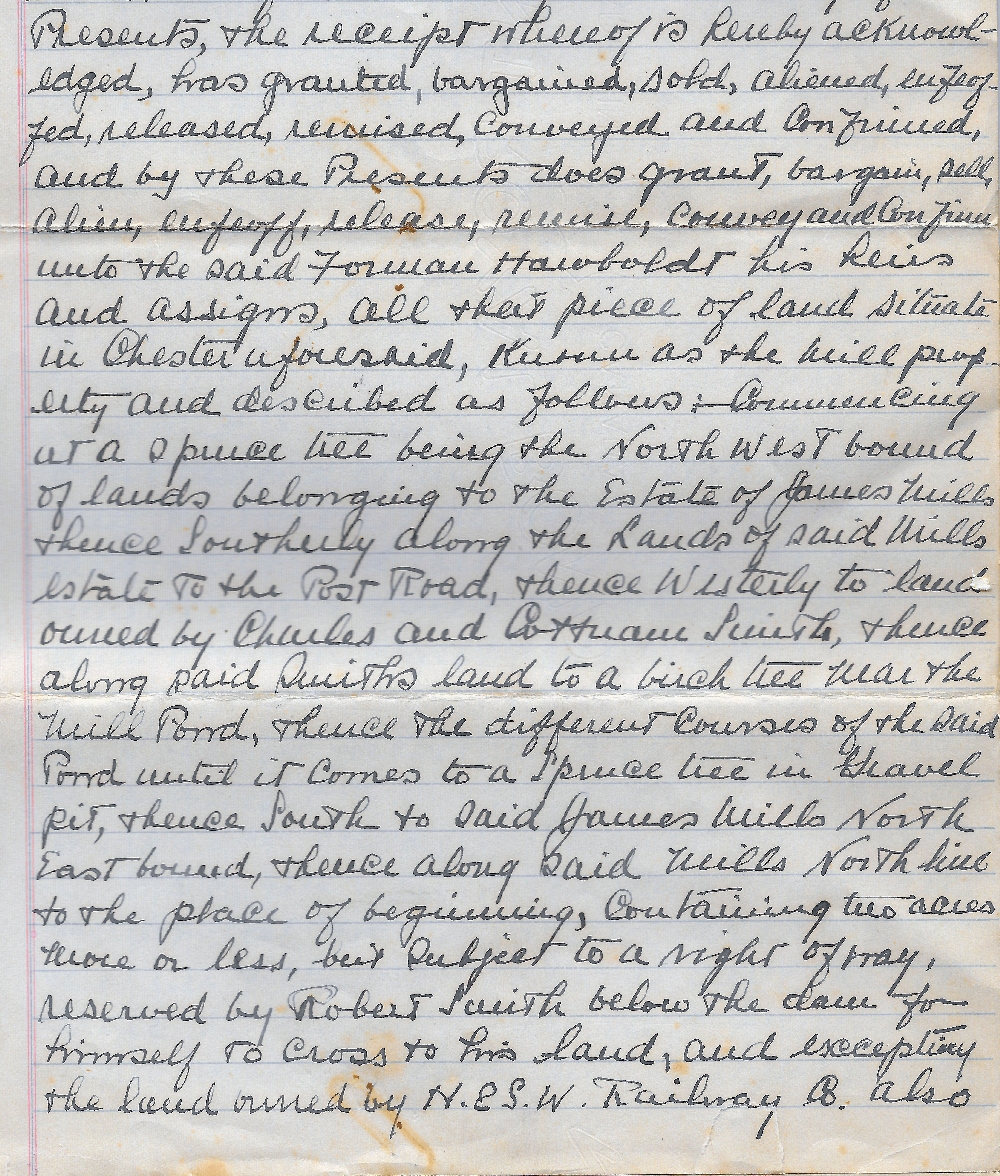 Presents, the receipt whereof is hereby acknowl-
edged, has granted, bargained, sold, aliened, enfeof-
fed, released, remised, conveyed and Confirmed,
and by these Presents does grant, bargain, sell,
alien, enfeoff, release, remise, convey and Confirm
unto the said Forman Hawboldt his heirs
and assigns, all that piece of land situate
in Chester aforesaid, Known as the Mill prop-
erty and described as follows :- Commencing
at a Spruce tree being the North West bound
of lands belonging to the Estate of James Mills
thence Southerly along the Lands of said Mills
estate To the Post Road, thence Westerly to land
owned by Charles and Cottnam Smith, thence
along said Smiths land to a birch tree near the
Mill Pond, thence the different Courses of the said
Pond until it Comes to a Spruce tree in Gravel
pit, thence South to said James Mills North
East bound, thence along said Mills North line
to the place of beginning, Containing two acres
more or less, but Subject to a right of way,
reserved by Robert Smith below the dam for
himself to Cross to his land, and excepting
the land owned by H. & S. W. Railway Co. also